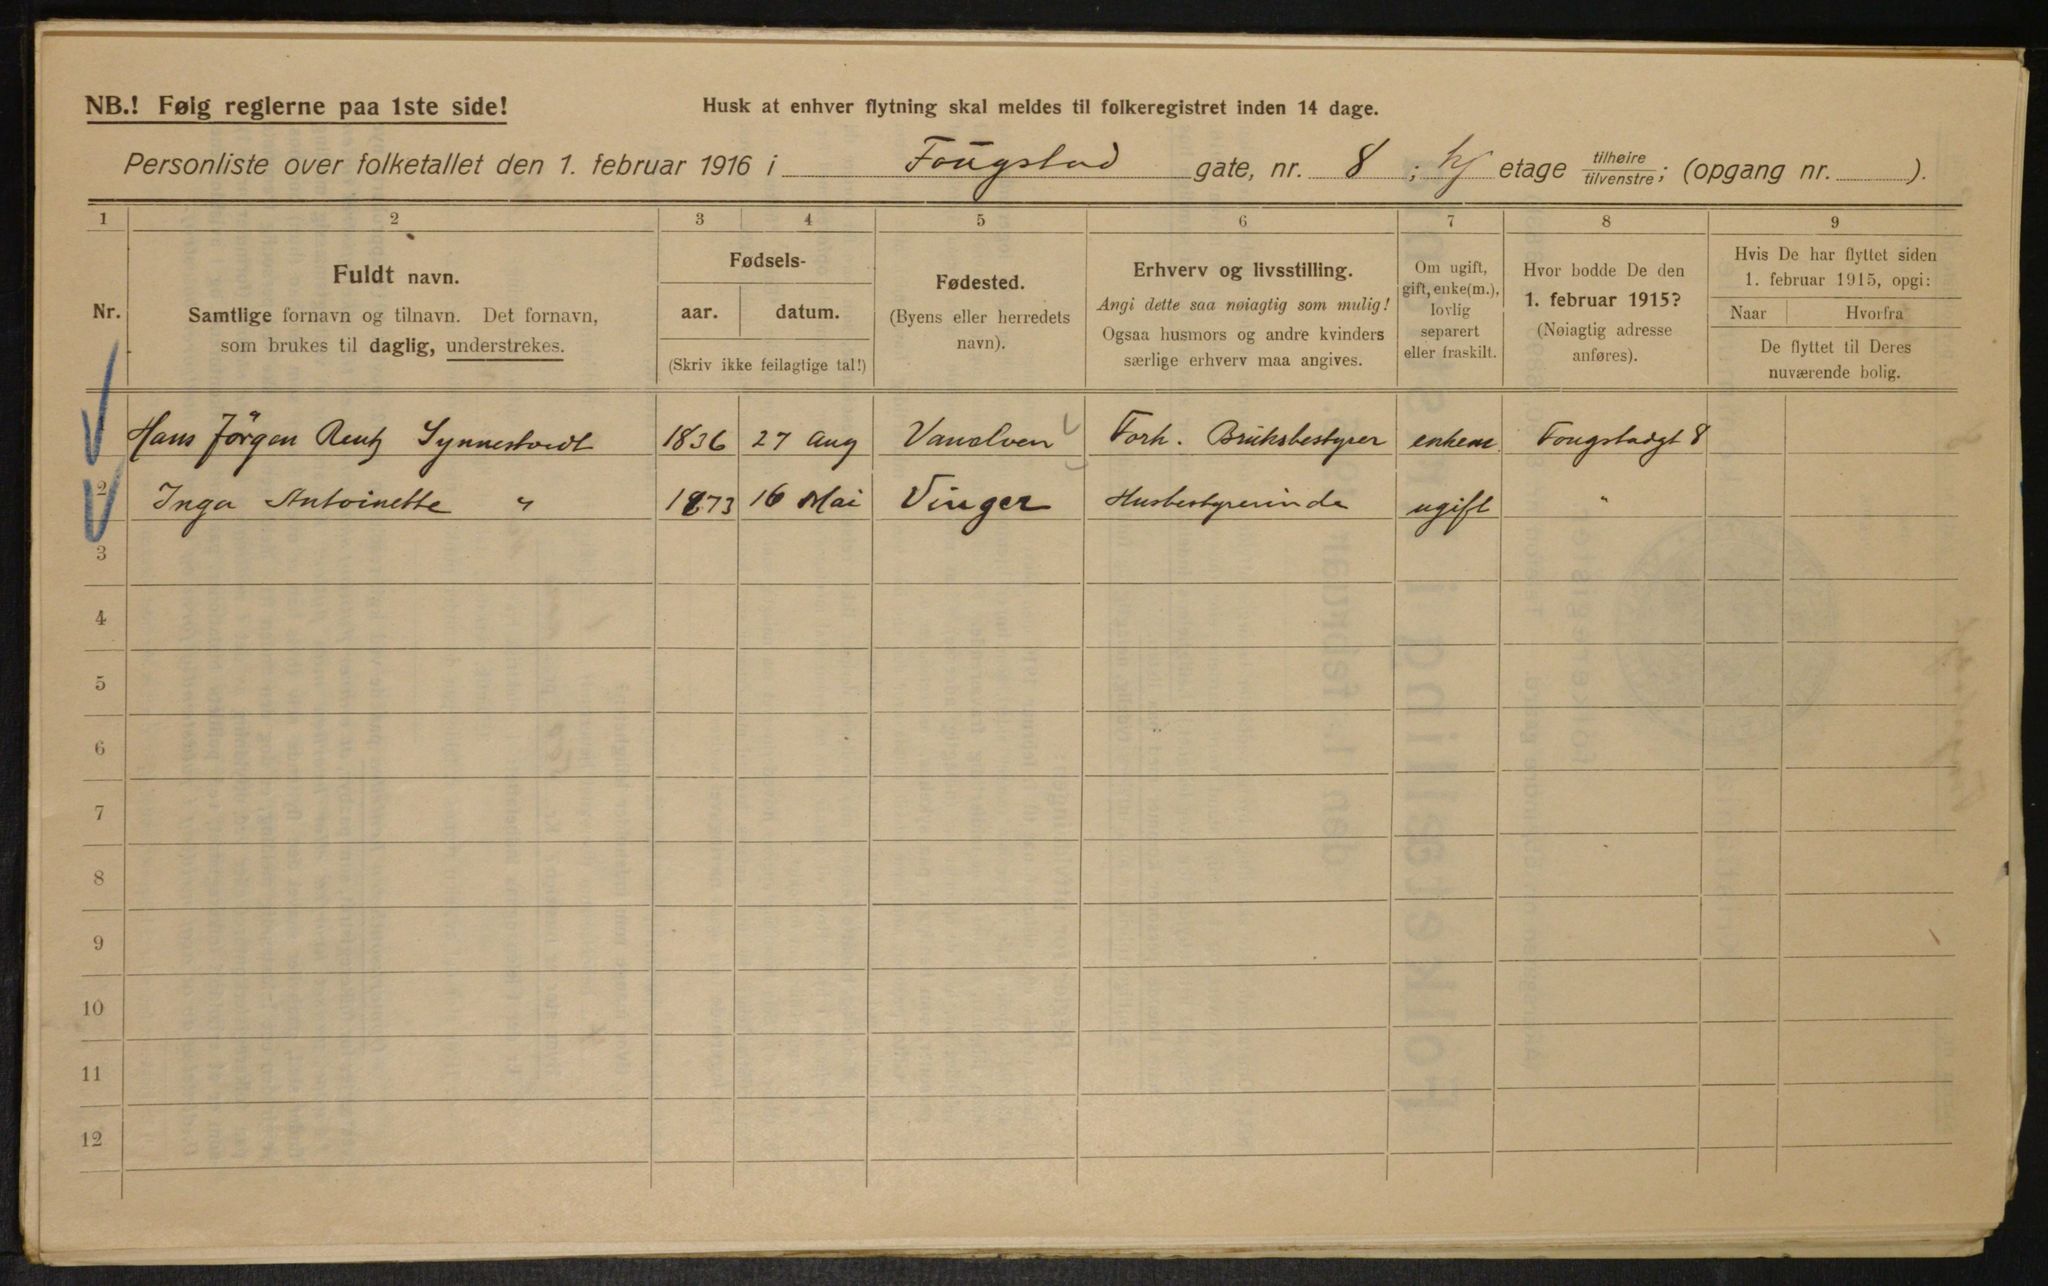 NB.! Følg reglerne paa 1ste side!
Husk at enhver flytning skal meldes til folkeregistret inden 14 dage.
Personliste over folketallet den 1. februar 1916 i Fougstad gate, nr. 8 ; etage tilhøire tilvenstre ; (opgang nr. ).
1 2 3 4 5 6 7 8 9
Nr.
Fuldt navn.
Samtlige fornavn og tilnavn. Det fornavn,
som brukes til daglig, understrekes.
Fødsels-
aar. datum.
(Skriv ikke feilagtige tal!)
Fødested.
(Byens eller herredets
navn).
Erhverv og livsstilling.
Angi dette saa nøiagtig som mulig!
Ogsaa husmors og andre kvinders
særlige erhverv maa angives.
Om ugift,
gift, enke(m.),
lovlig
separert
eller fraskilt.
Hvor bodde De den
1. februar 1915?
(Nøiagtig adresse
anføres).
Hvis De har flyttet siden
1. februar 1915, opgi:
Naar Hvorfra
De flyttet til Deres
nuværende bolig.
Hans Jörgen Rentz Synnestvedt 1836 27 Aug Vanelven Forh. Bruksbestyrer enkem Fougstadgt 8
2 Inga Antoinette " 1873 16 Mai Vinger Husbestyrerinde ugift "
3
4
5
6
7
8
9
10
11
12